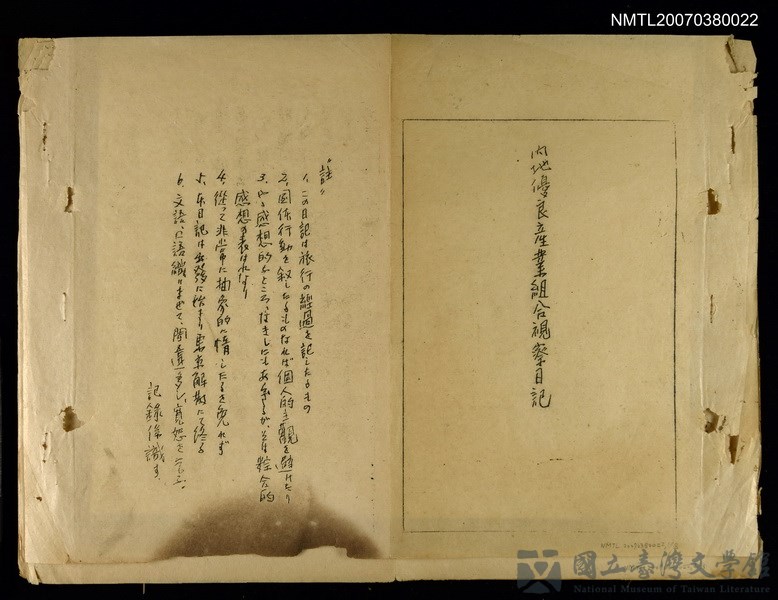 NMTL20070380022
内地優良産業組合視察日記
"註"
1、この日記は旅行の經過を記したるもの
2、團体行動を叙したるものなれば個人的主觀を避けたり
3、やゝ感想的なところ、なきにしもあらざるが、そは綜合的
感想の表はれなり
4、從って非常に抽象的に惰したるを免れず
5、本日記は出發に始まり東京解散にて終る
6、文語、口語織りまぜて、間違多し、寛恕を乞ふ。
記録係識す
NMTL 20070380022
國立臺灣文學館
National Museum of Taiwan Literature